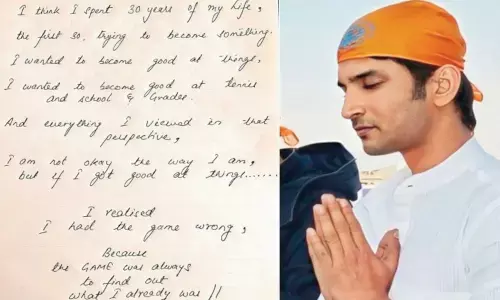 I think I spent 30 years of my life,
the first 30, trying to become something.
I wanted to become good at
things,
I wanted to become good at tennis
and school & Grades.
And everything I viewed in that
perspective,
I am not okay the way I am,
but if I got good at things.......
I realised
I had the game wrong,
Because
the GAME was always
to find out
what I already was !!